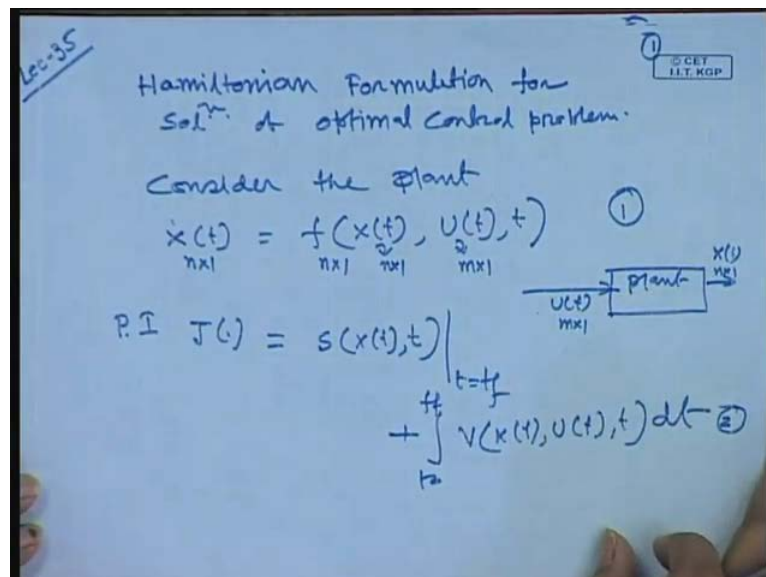 Lec-35
①
© CET
I.I.T. KGP
Hamiltonian Formulation for
Solⁿ. of optimal control problem.
Consider the plant
ẋ(t) = f(x(t), U(t), t) ①
n×1 n×1 n×1 m×1
U(t)
m×1
plant
x(t)
n×1
P.I J(.) = S(x(t), t)|
t=tf
+ ∫ V(x(t), U(t), t) dt - ②
tf
t0